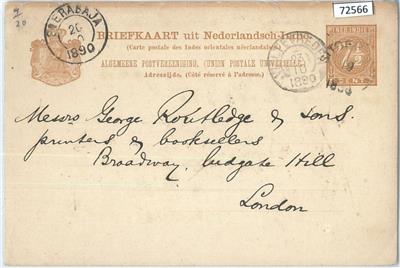 72566
SOERABAJA
20
1890
BRIEFKAART uit Nederlandsch-
(Carte postale des Indes orientales néerlandaises
ALGEMEENE POSTVEREENIGING. (UNION POSTALE UNIVERSELLE
Adreszijde. (Côté réservé à l'adresse.)
10
1890
CENT.
Messrs George Routledge & Sons.
printers & booksellers
Broadway, Ludgate Hill
London